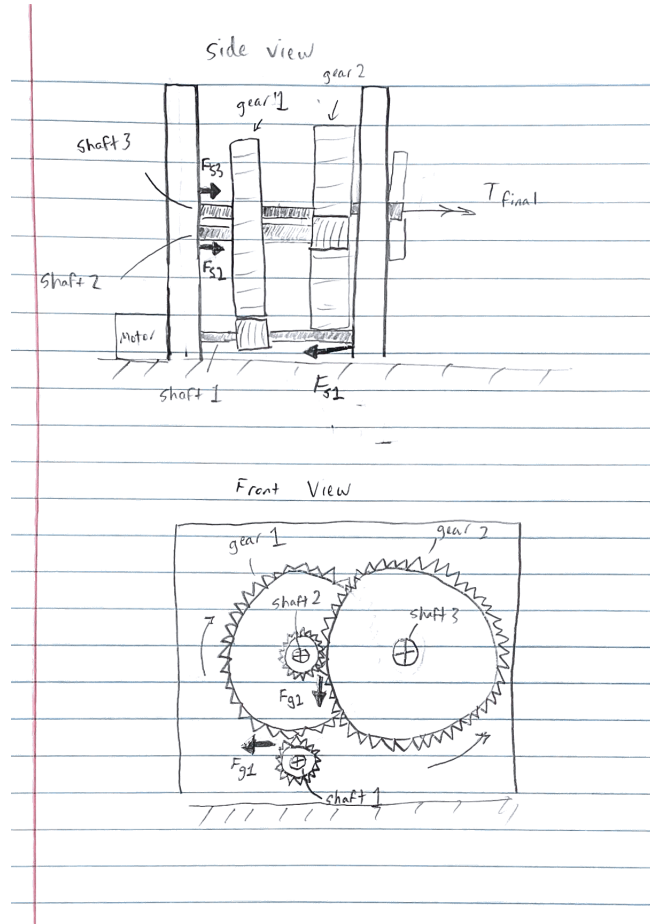 side view
gear 2
gear 1
shaft 3
Fs3
Tfinal
Fs2
shaft 2
Motor
shaft 1
Fs1
Front View
gear 1
gear 2
shaft 2
shaft 3
Fg2
Fg1
shaft 1